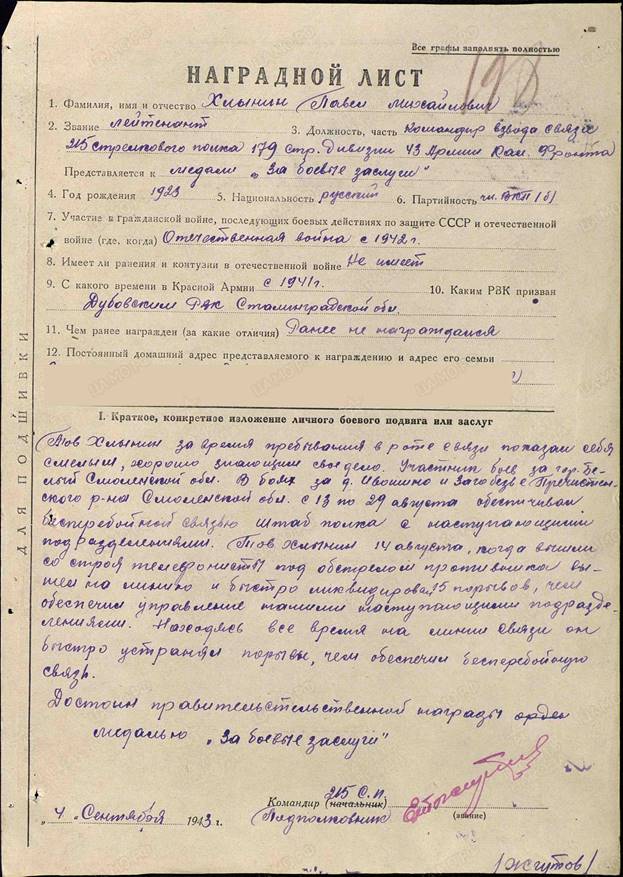 Все графы заполнять полностью
198
НАГРАДНОЙ ЛИСТ
1. Фамилия, имя и отчество Хлынин Павел Михайлович
2. Звание лейтенант 3. Должность, часть Командир взвода связи
215 стрелкового полка 179 стр. дивизии 43 Армии Кал. Фронта
Представляется к медали „За боевые заслуги"
4. Год рождения 1923 5. Национальность русский 6. Партийность чл. ВКП(б)
7. Участие в гражданской войне, последующих боевых действиях по защите СССР и отечественной
войне (где, когда) Отечественная война с 1942 г.
8. Имеет ли ранения и контузии в отечественной войне Не имеет
9. С какого времени в Красной Армии с 1941 г. 10. Каким РВК призван
Дубовским РВК Сталинградской обл.
11. Чем ранее награжден (за какие отличия) Ранее не награждался
12. Постоянный домашний адрес представляемого к награждению и адрес его семьи
ДЛЯ ПОДШИВКИ
I. Краткое, конкретное изложение личного боевого подвига или заслуг
Тов Хлынин за время пребывания в роте связи показал себя
смелым, хорошо знающим свое дело. Участник боев за гор. Бе-
лый Смоленской обл. В боях за д. Ивошино и Загобезье Пречистен-
ского р-на Смоленской обл. с 13 по 29 августа обеспечивал
бесперебойной связью штаб полка с наступающими
подразделениями. Тов Хлынин 14 августа, когда вышли
со строя телефонисты под обстрелом противника вы-
шел на линию и быстро ликвидировал 15 порывов, чем
обеспечил управление нашими наступающими подразде-
лениями. Находясь все время на линии связи он
быстро устранял порывы, чем обеспечил бесперебойную
связь.
Достоин правительственной награды орден
медалью „За боевые заслуги"
215 С.П.
Командир (начальник)
„4" Сентября 1943 г. Подполковник
(звание)
/Жгутов/